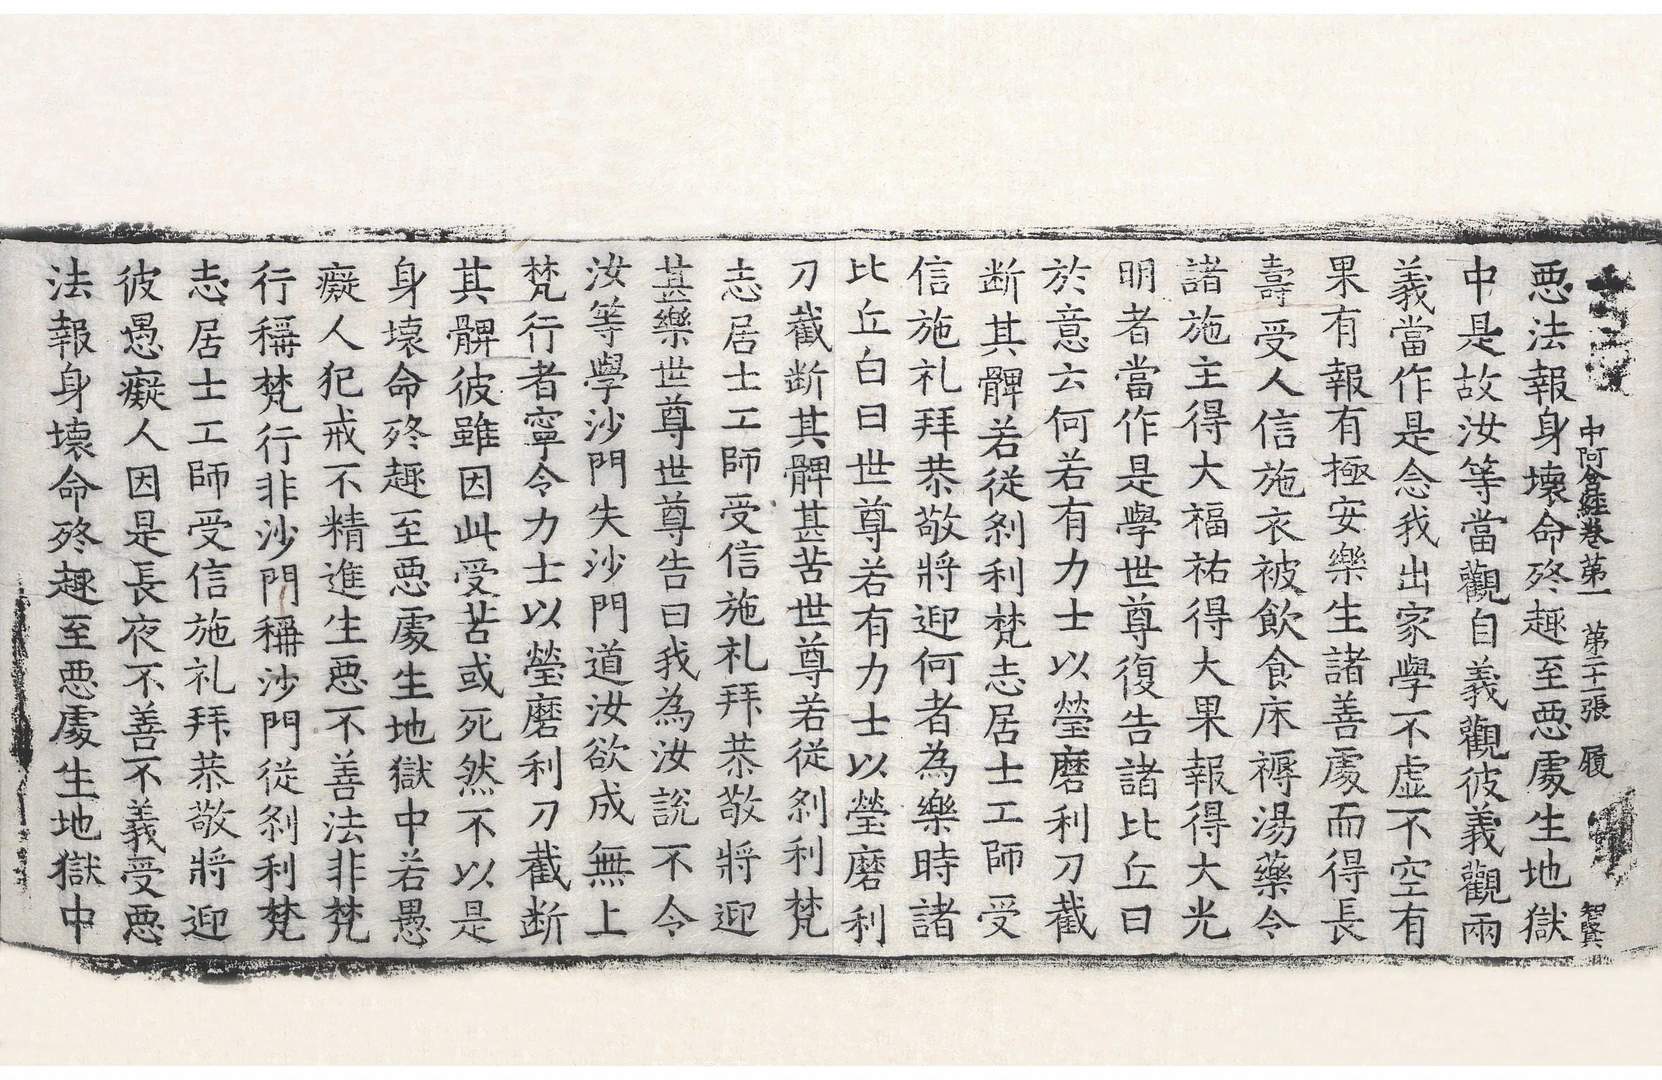 中阿含經卷第一 第二十一張 履 智賢
惡法報身壞命終趣至惡處生地獄
中是故汝等當觀自義觀彼義觀兩
義當作是念我出家學不虛不空有
果有報有極安樂生諸善處而得長
壽受人信施衣被飲食床褥湯藥令
諸施主得大福祐得大果報得大光
明者當作是學世尊復告諸比丘曰
於意云何若有力士以瑩磨利刀截
斷其髀若從剎利梵志居士工師受
信施礼拜恭敬將迎何者為樂時諸
比丘白曰世尊若有力士以瑩磨利
刀截斷其髀甚苦世尊若從剎利梵
志居士工師受信施礼拜恭敬將迎
甚樂世尊世尊告曰我為汝說不令
汝等學沙門失沙門道汝欲成無上
梵行者寧令力士以瑩磨利刀截斷
其髀彼雖因此受苦或死然不以是
身壞命終趣至惡處生地獄中若愚
癡人犯戒不精進生惡不善法非梵
行稱梵行非沙門稱沙門從剎利梵
志居士工師受信施礼拜恭敬將迎
彼愚癡人因是長夜不善不義受惡
法報身壞命終趣至惡處生地獄中